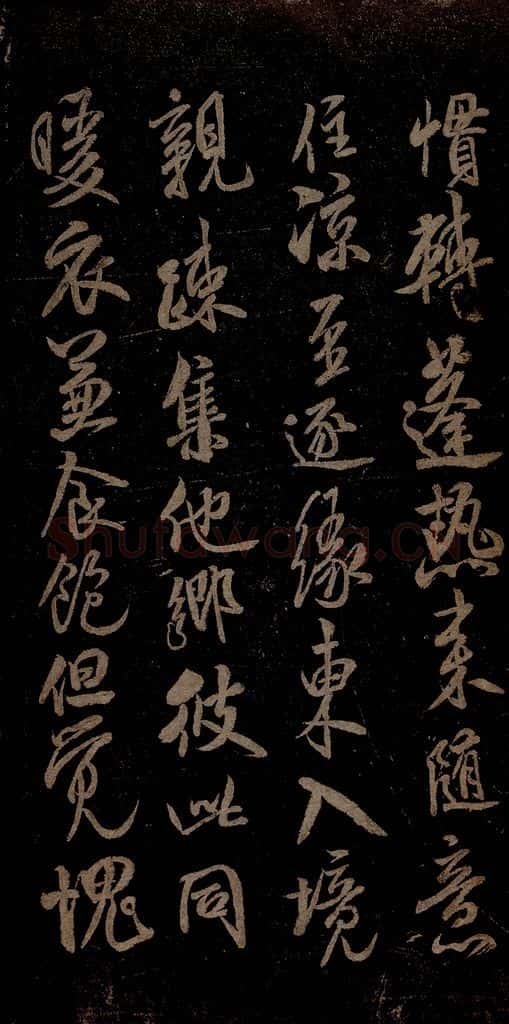 慣轉蓬热来随意
住凉至逐緣東入境
親疎集他鄉彼此同
暖衣兼食飽但覓愧
Shufawang.cn